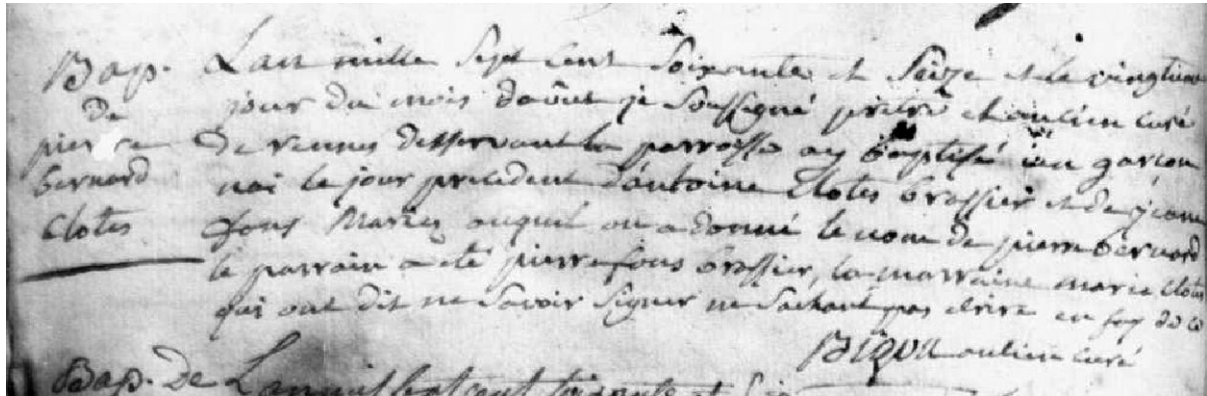 Bap.
de
pierre
bernard
Clotes
Lan mille Sept Cent Soixante et Seize et le vingtieme
jour du mois daôut je Soussigné prêtre et ancien curé
de rennes desservant la parroisse ay baptisé un garcon
nai le jour precedent dantoine Clotes brassier et de jeanne
fons Mariez auquel on a donné le nom de pierre bernard
le parrain a eté pierre fons brassier, la marraine marie Clotes
qui ont dit ne Savoir Signer ne Sachant pas ecrire en foy de ce
Bigou ancien curé
Bap. de Lan mil Sept cent Soixante et